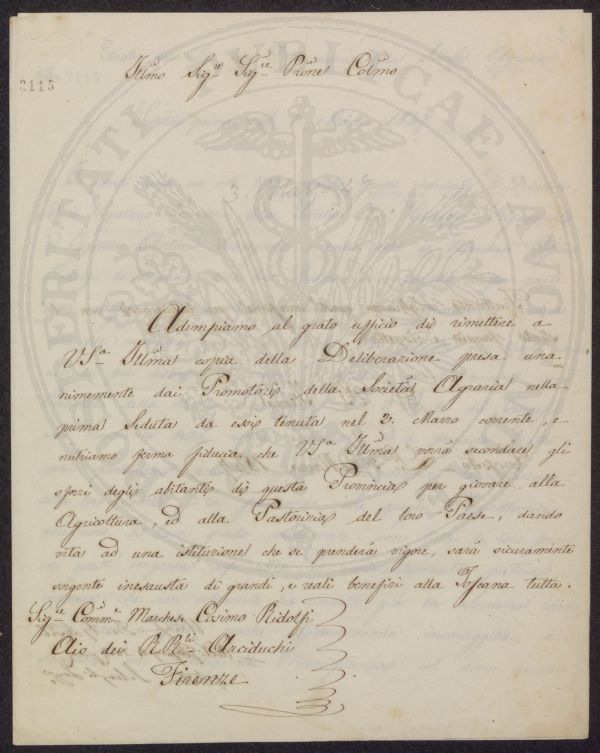 2115
Illmo Sigre Sigre Prone Colmo
Adempiamo al grato ufficio di rimettere a
VSa Illma copia della Deliberazione presa una=
nimemente dai Promotori della Società Agraria nella
prima Seduta da essi tenuta nel 3. Marzo corrente, e
nutriamo ferma fiducia che VSa Illma vorrà secondare gli
sforzi degli abitanti di questa Provincia per giovare alla
Agricoltura, ed alla Pastorizia del loro Paese, dando
vita ad una istituzione che se prenderà vigore, sarà sicuramente
sorgente inesausta di grandi, e reali benefizi alla Toscana tutta.
Sigre Commre Marchese Cosimo Ridolfi
Aio dei R.Rli Arciduchi
Firenze